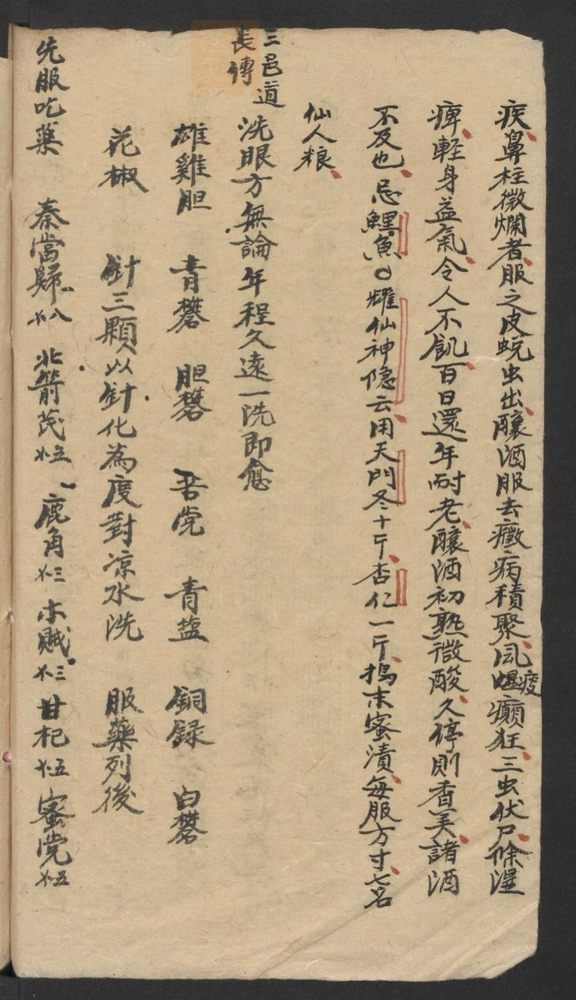 疾鼻柱徵爛者服之皮蛻虫出釀酒服去癥病積聚風㷄癲狂三虫伏尸除溼
痺輕身益氣令人不飢百日還年耐老釀酒初熟微酸久停則香美諸酒
不及也忌鯉魚〇臞仙神隐云用天門冬十斤杏仁一斤搗末蜜漬每服方寸匕名
仙人粮
三邑道
長傳
洗眼方無論年程久遠一洗即愈
雄雞胆 青礬 胆礬 吾党 青盐 銅録 白礬
花椒 針三顆以針化為度對凉水洗 服藥列後
先服吃藥 秦當歸 北箭芪 鹿角 木賊 甘杞 蜜党